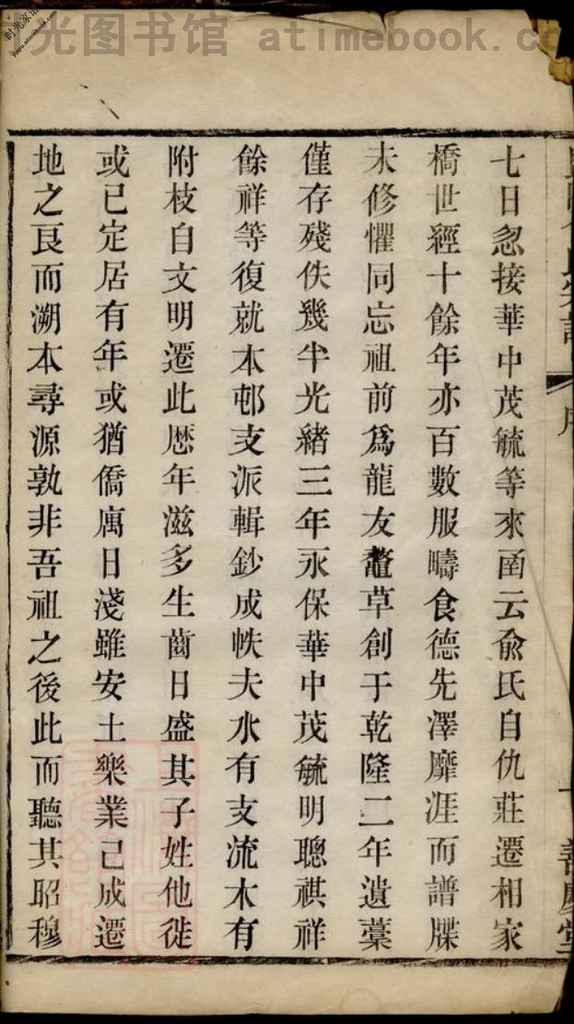 光图书馆 atimebook.co
七日忽接華中茂毓等來函云俞氏自仇莊遷相家
橋世經十餘年亦百數服疇食德先澤靡涯而譜牒
未修懼同忘祖前爲龍友鼇草創于乾隆二年遺藁
僅存殘佚幾半光緒三年永保華中茂毓明聰祺祥
餘祥等復就本邨支派輯鈔成帙夫水有支流木有
附枝自文明遷此歴年滋多生齒日盛其子姓他徙
或已定居有年或猶僑寓日淺雖安土樂業已成遷
地之良而溯本尋源孰非吾祖之後此而聽其昭穆
善慶堂